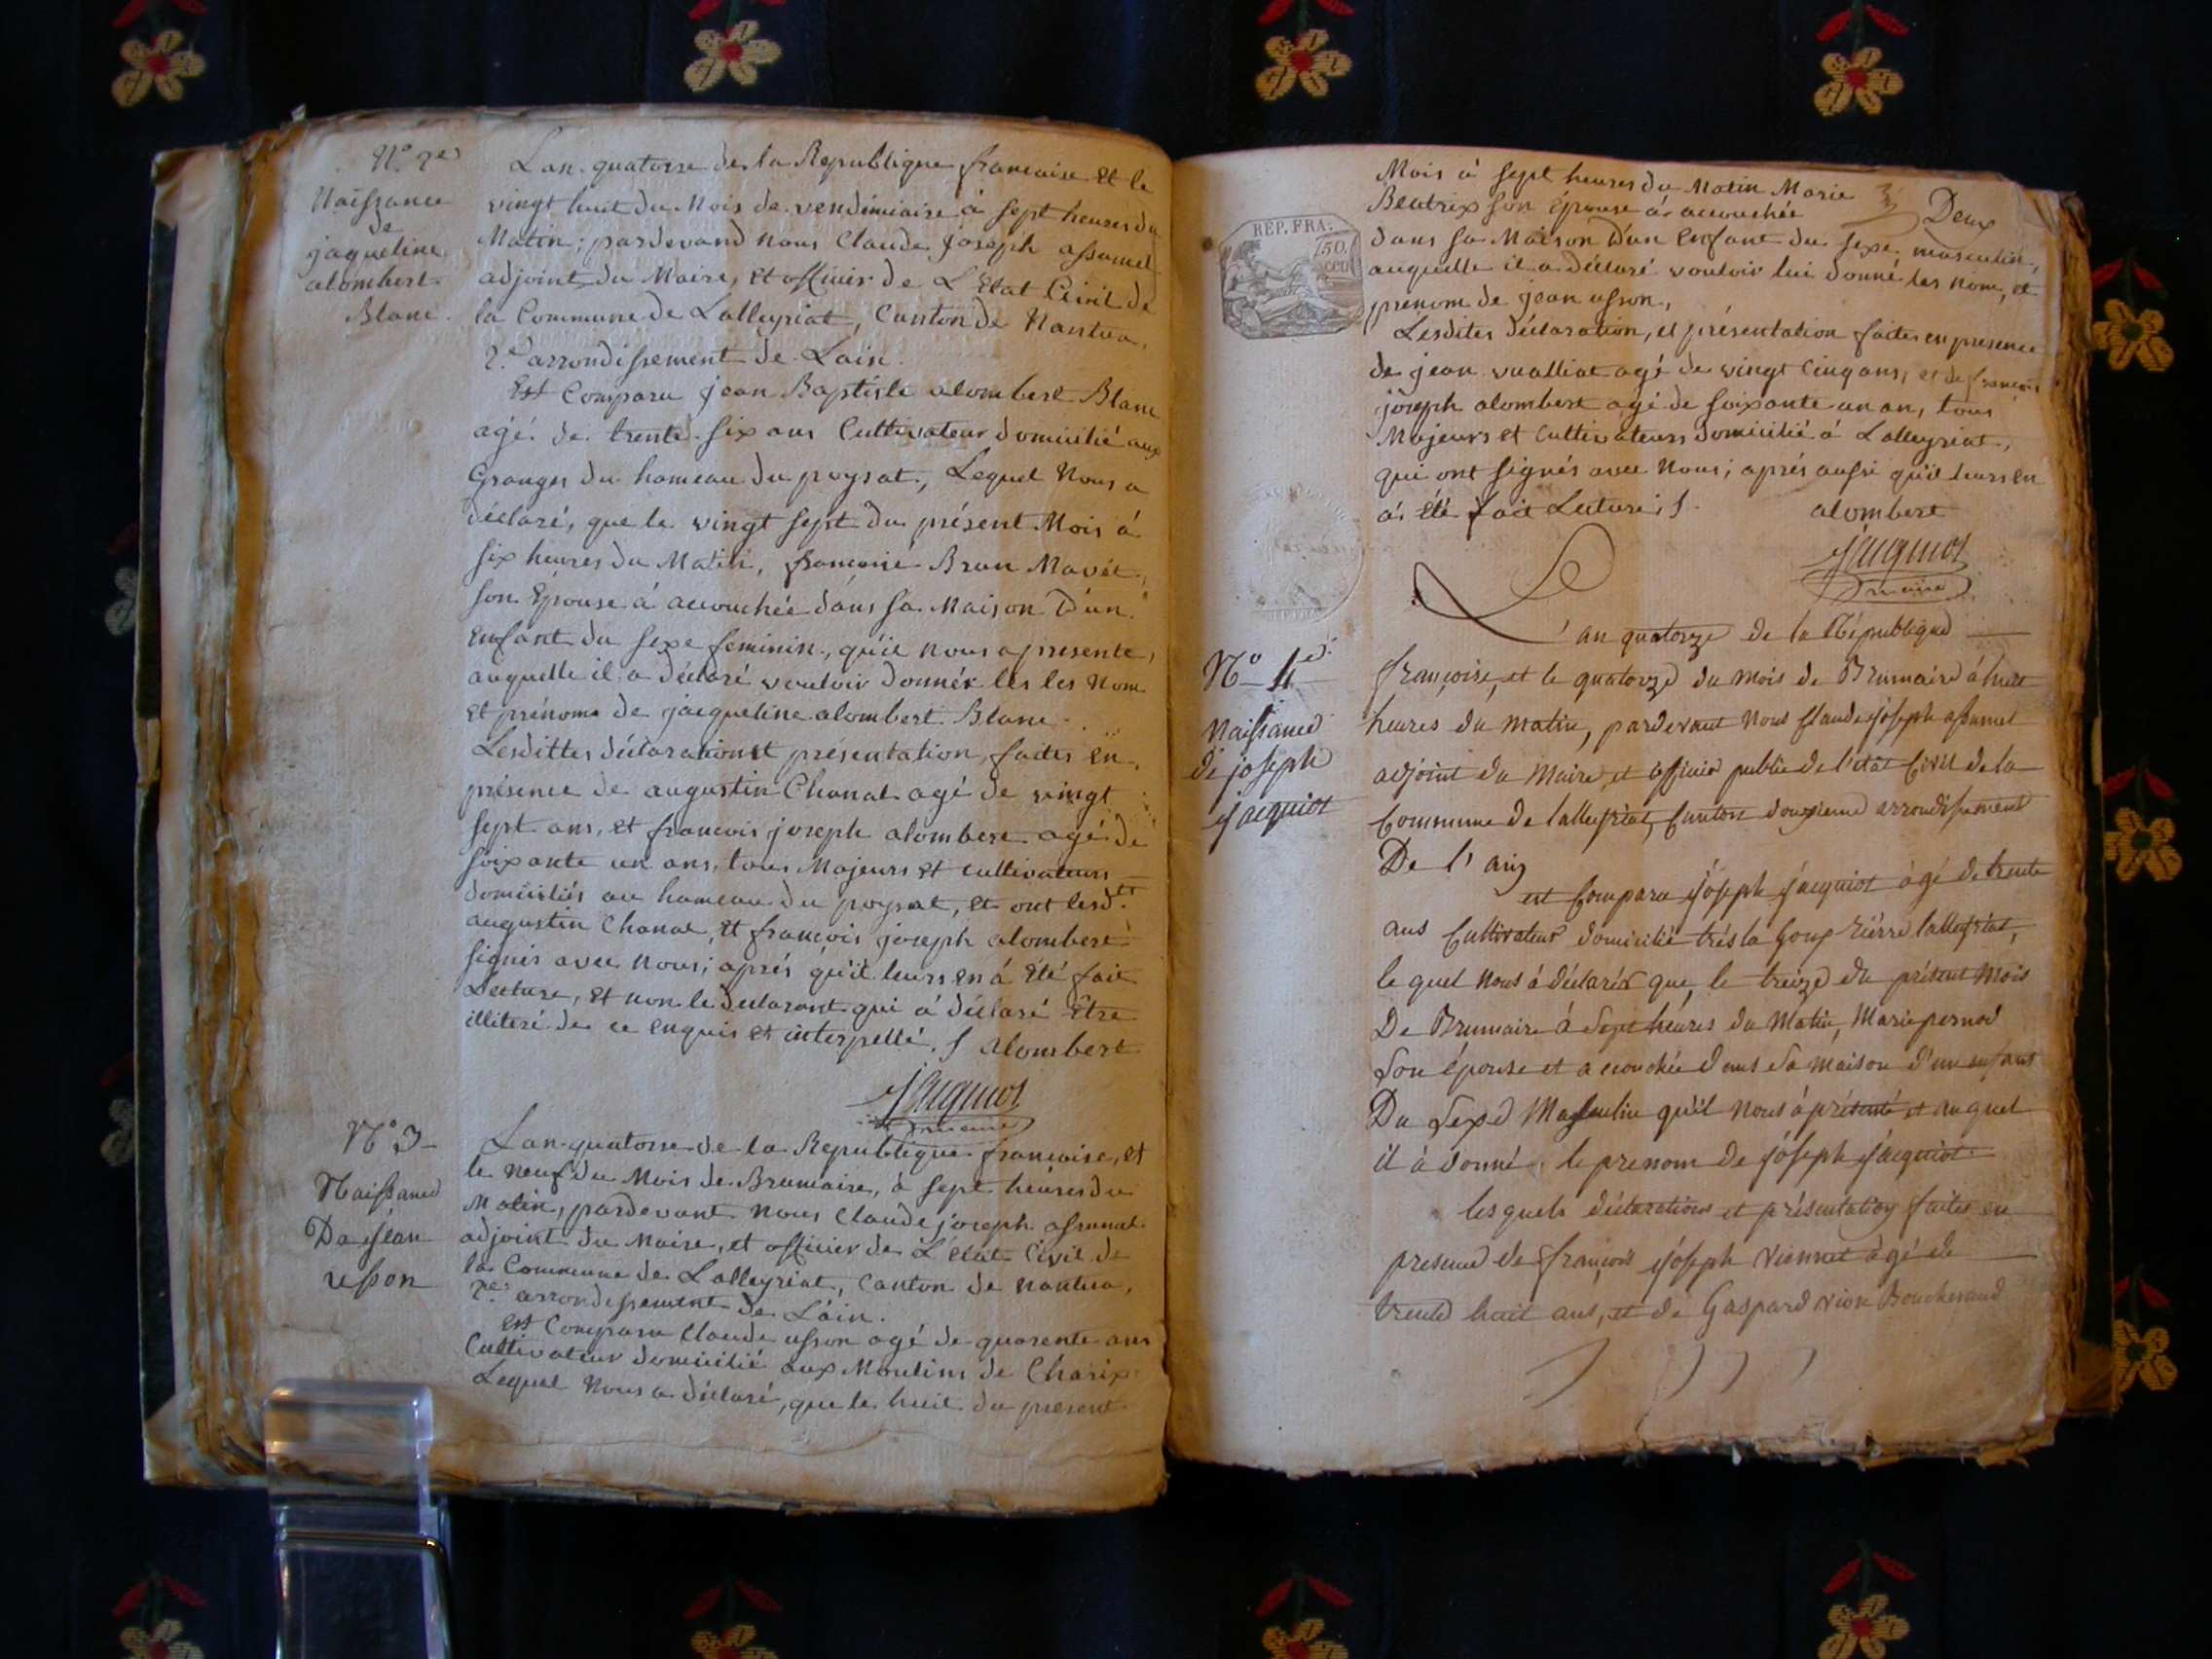 N.º 2.e
Naissance
de
jaqueline
alombert
Blanc.
Lan quatorse de la Republique francoise et le
vingt huit du Mois de vendémiaire à sept heures du
Matin; pardevand nous Claude joseph assumel
adjoint du Maire, et officier de L'Etat Civil de
la Commune de Lalleyriat, Canton de Nantua,
2.e arrondissement de Lain.
Est Comparu jean Baptiste alombert Blanc
agé de trente six ans Cultivateur domicilié aux
Granges du hameau du poysat, Lequel Nous a
déclaré, que le vingt sept du présent Mois à
six heures du Matin, francoise Brun Mavét
son Épouse á accouchée dans sa Maison D'un
enfant du sexe feminin, qu'il nous a presente,
auquelle il a déclaré vouloir donnér les les Nom
et prénoms de jacqueline alombert Blanc.
Lesdittes déclaration et présentation faites en
présence de augustin Chanal agé de vingt
sept ans, et francois joseph alombert agé de
soixante un ans, tous Majeurs et cultivateurs
domiciliés au hameau du poysat, et ont lesd.ts
augustin Chanal, et françois joseph alombert
signés avec nous; aprés qu'il leurs en á été fait
Lecture, et non le declarant qui á déclaré Etre
illiteré de ce enquis et interpellé. / alombert
Jacquiot
maire
N.º 3
Naissance
De jean
usson
Lan quatorse de la Republique francoise, et
le neuf du Mois de Brumaire, à sept heures du
Matin, pardevant nous Claude joseph assumel
adjoint du Maire, et officier de L'Etat Civil de
la Commune de Lalleyriat, Canton de Nantua,
2.e arrondissement de Láin.
est Comparu Claude usson agé de quarente ans
Cultivateur domicilié aux Moulins de Charix
Lequel Nous a déclaré, que le huit du present
Mois à sept heures du Matin Marie
Beatrix son épouse á accouchée
Deux
REP. FRA.
750.
cen
dans sa Maison D'un Enfant du sexe masculin,
auquelle il a déclaré vouloir lui donné les nom, et
prenom de jean usson,
Lesdites déclaration, et présentation faites en presence
de jean vualliat agé de vingt Cinq ans, et de françois
joseph alombert agé de soixante un an, tous
Majeurs et Cultivateurs domicilié á Lalleyriat,
qui ont signés avec Nous; aprés aussi qu'il leurs en
á été fait Lecture; /. alombert
Jacquiot
maire
N.º 4.e
Naissance
de joseph
jacquiot
L'an quatorze de la République
françoise, et le quatorze du mois de Brumaire á huit
heures du matin, pardevant Nous Claude joseph assumel
adjoint du Maire, et officier public de l'état Civil de la
Commune de lalleyriat, Canton deuxieme arrondissement
De l'ain
est Comparu joseph jacquiot àgé de trente
ans Cultivateur domicilié trés la Coup rierre lalleyriat,
le quel nous á déclaré que, le treize du présent Mois
De Brumaire á sept héures du Matin, Marie pernod
Son épouse et accouchée dans Sa maison d'un enfant
Du Sexe Masculin qu'il Nous á présenté et auquel
il á donné le prenom de joseph jacquiot
les quels déclarations et présentation faites en
presence de françois joseph vionnet àgé de
trente huit ans, et de Gaspard vion Boucherand